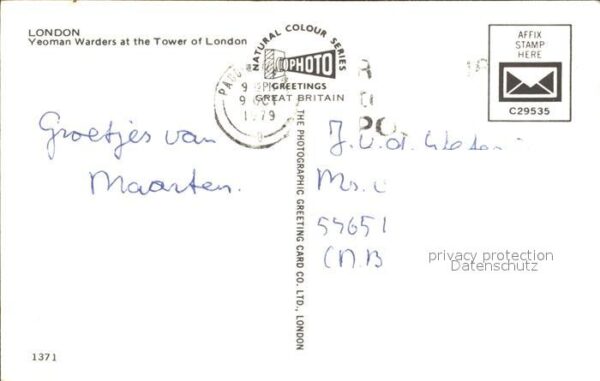 LONDON
Yeoman Warders at the Tower of London
NATURAL COLOUR SERIES
PHOTO
GREETINGS
GREAT BRITAIN
AFFIX
STAMP
HERE
C29535
9 OCT
1979
Groetjes van
Maarten.
THE PHOTOGRAPHIC GREETING CARD CO. LTD., LONDON
J.v.d.
54651
privacy protection
Datenschutz
1371